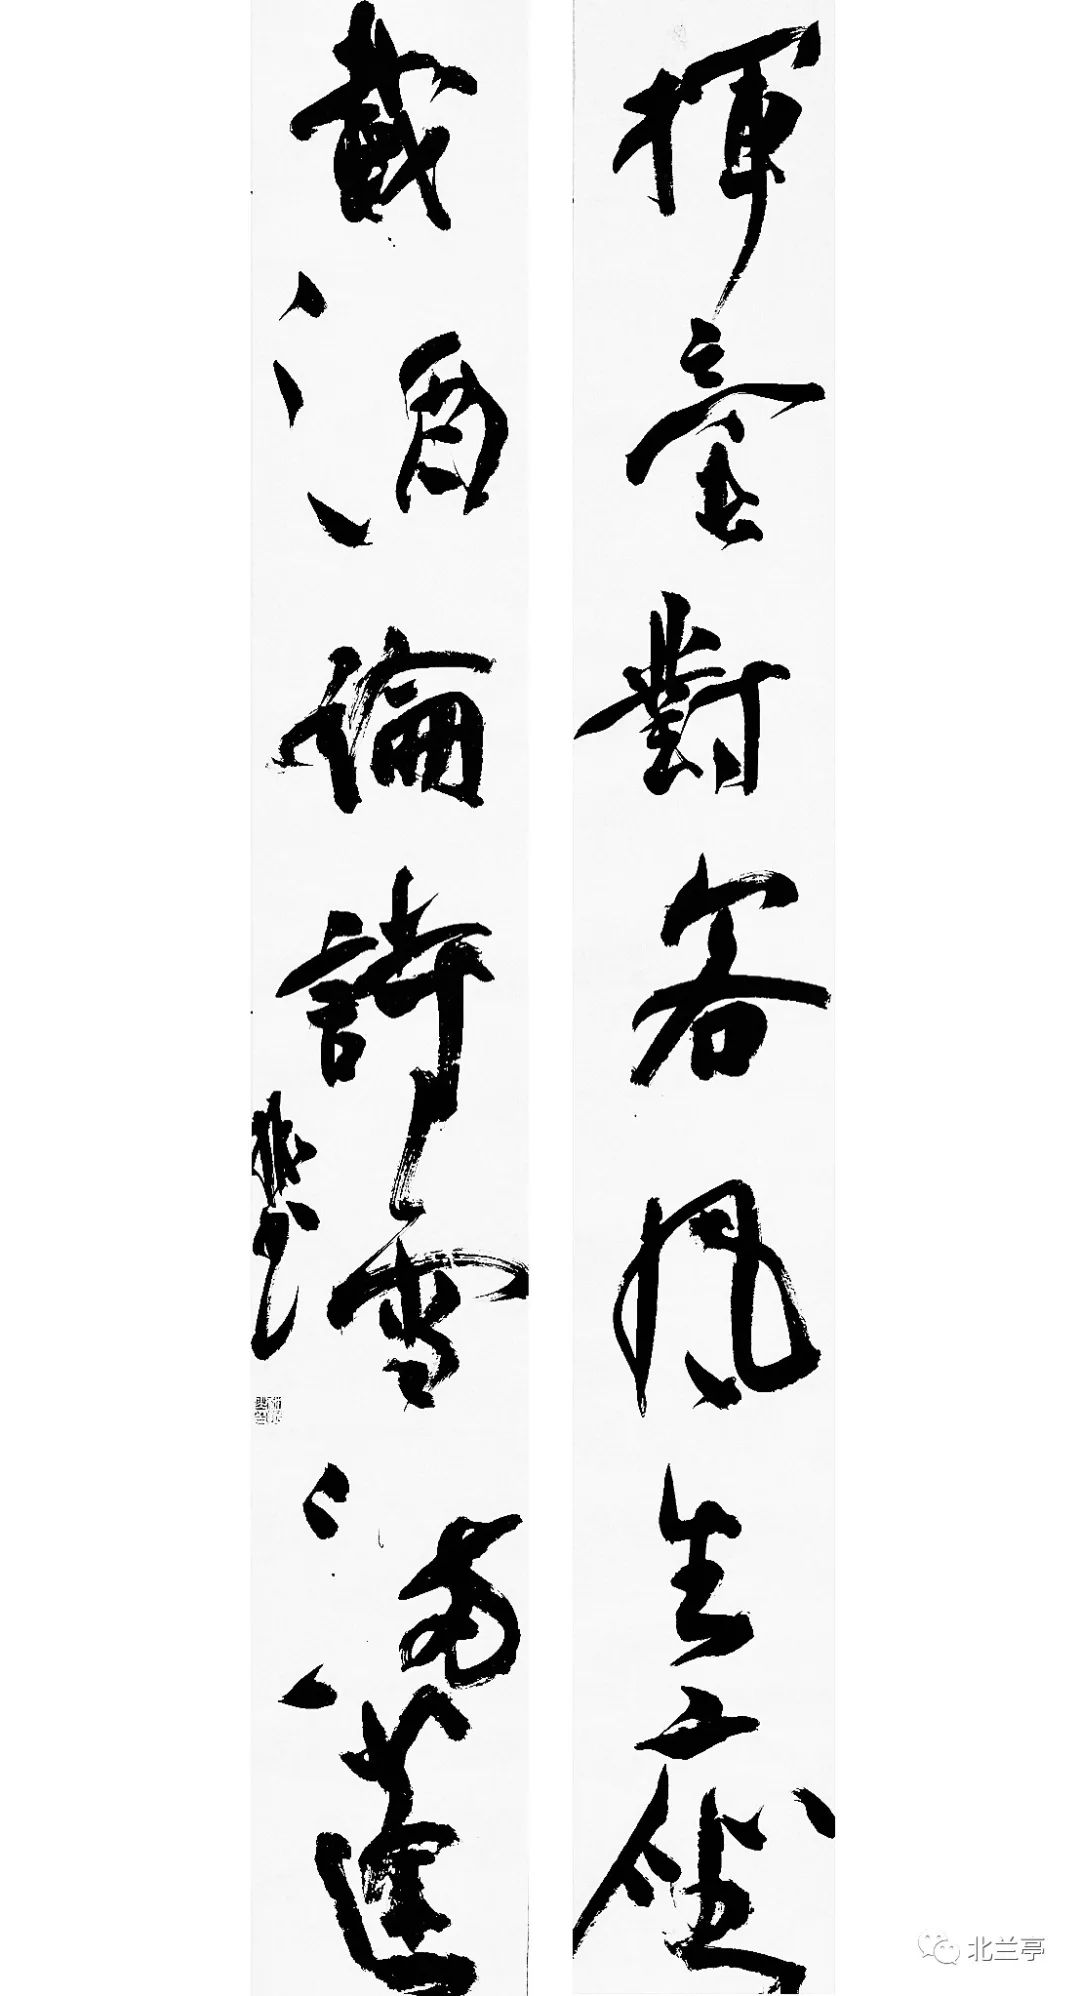 揮毫對客風生座
載酒論詩雪滿蓬
北兰亭